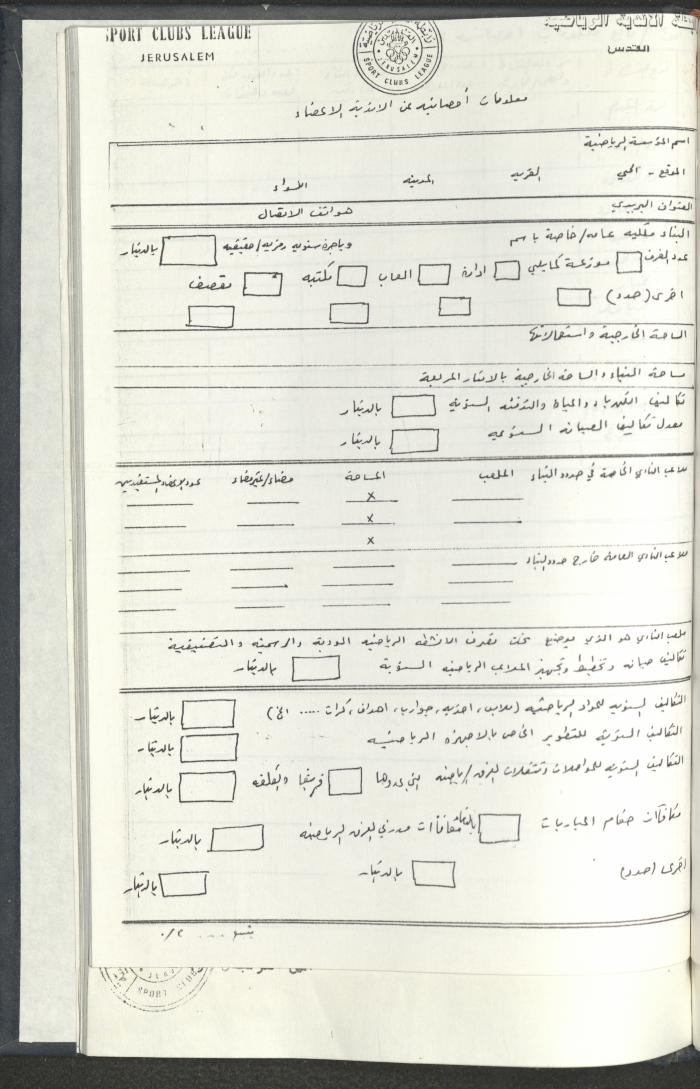 SPORT CLUBS LEAGUE
JERUSALEM
رابطة الأندية الرياضية
القدس
JERUSALEM
SPORT CLUBS LEAGUE
معلومات احصائيه عن الاندية الاعضاء
اسم المؤسسة الرياضية
الموقع - الحي القريه المدينه اللواء
العنوان البريدي هواتف الاتصال
البناء ملكيه عامه/خاصة باسم وباجرة سنويه رمزيه/حقيقيه بالدينار
عدد الغرف موزعة كمايلي ادارة العاب مكتبه مقصف
اخرى (حدد)
الساحة الخارجية واستعمالاتها
مساحة البناء والساحة الخارجية بالامتار المربعة
تكاليف الكهرباء والمياة والتدفئه السنويه بالدينار
معدل تكاليف الصيانه السنويه بالدينار
ملاعب النادي الخاصة في حدود البناء الملعب المساحة مضاء/غير مضاء
x
x
x
ملاعب النادي العامة خارج حدود البناء
ملعب النادي هو الذي يوضع تحت تصرف الانشطه الرياضيه الودية والرسميه والتصنيفية
تكاليف صيانه وتخطيط وتجهيز الملاعب الرياضيه السنوية بالدينار
التكاليف السنويه للمواد الرياضيه (ملابس، احذيه، جوارب، اهداف، كرات ..... الخ) بالدينار
التكاليف السنويه للتطوير الخاص بالاجهزة الرياضيه بالدينار
التكاليف السنويه للمواصلات وتنقلات الفرق الرياضيه التي عددها فريقا والكلفه بالدينار
مكافآت حكام المباريات بالدينار مكافآت مدربي الفرق الرياضيه بالدينار
اخرى (حدد) بالدينار بالدينار
يتبع .... ٢/٠
SPORT CLUBS